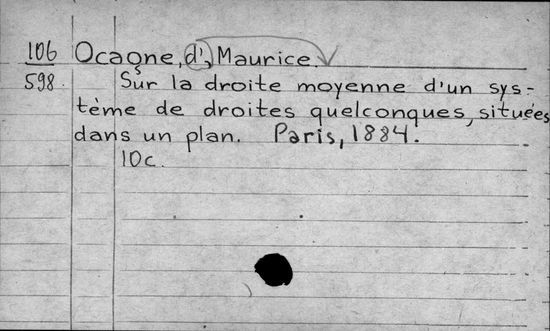 106 Ocagne, d', Maurice.
598. Sur la droite moyenne d'un sys-
tème de droites quelconques, situées
dans un plan. Paris, 1884.
10c.